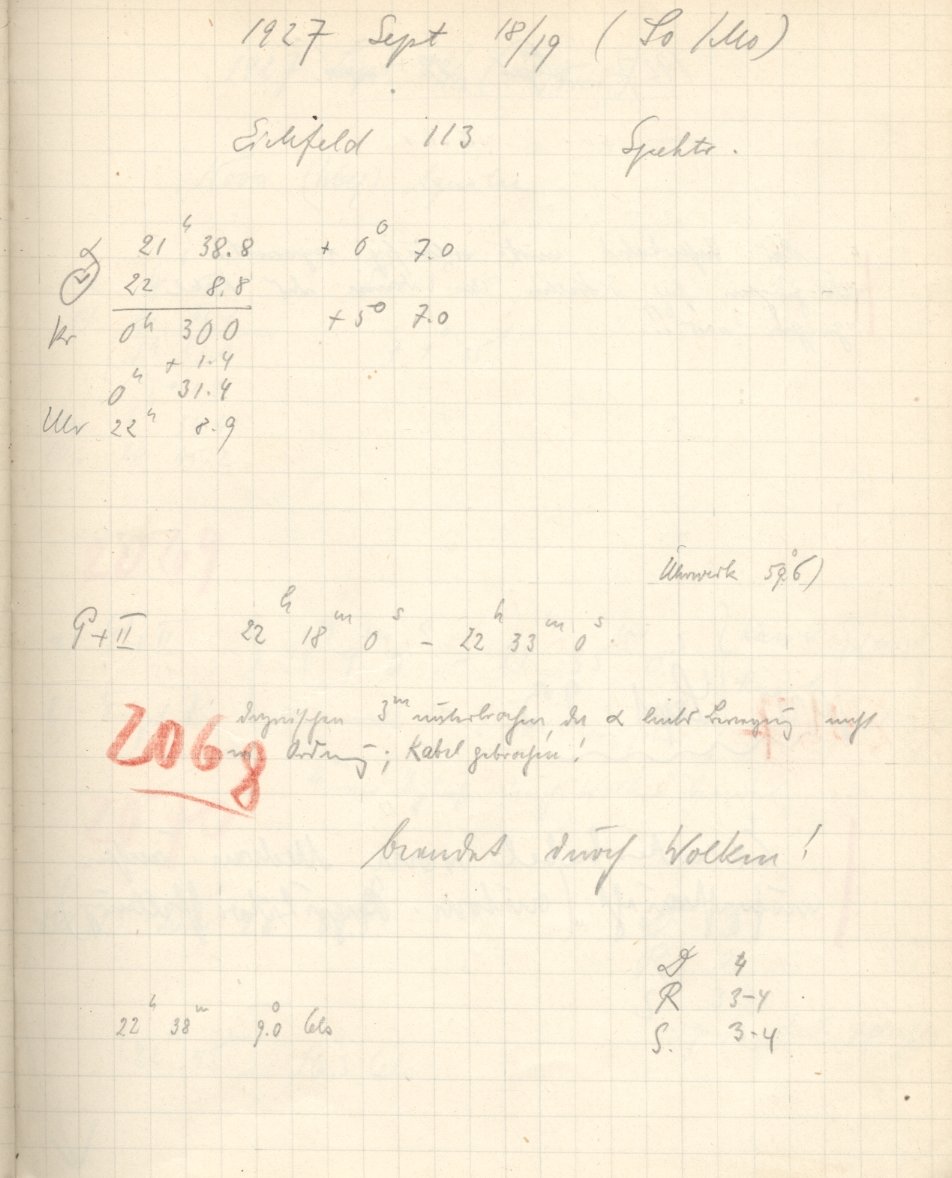 1927 Sept 18/19 (So/Mo)
Eichfeld 113 Spektr.
α 21ʰ 38.8 + 0° 7.0
22 8.8
Kr 0ʰ 30 0 + 5° 7.0
+ 1.4
0ʰ 31.4
Uhr 22ʰ 8.9
Uhrwerk 59°.6)
P + II 22ʰ 18ᵐ 0ˢ – 22ʰ 33ᵐ 0ˢ.
2068 dazwischen 3ᵐ unterbrochen da α Bewegung nicht
in Ordnung; Kabel gebrochen!
beendet durch Wolken!
D 4
R 3-4
22ʰ 38ᵐ 9.0° Cels
S. 3-4